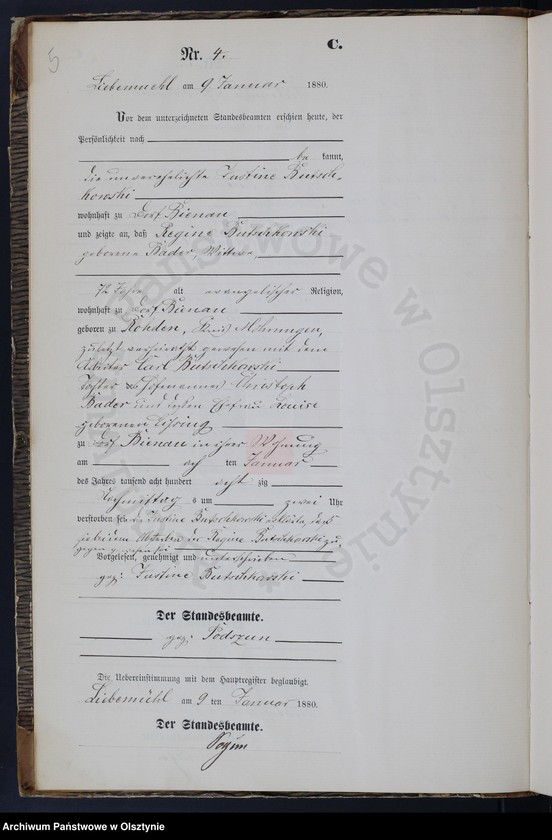 5
C.
Nr. 4.
Liebemuehl am 9 Januar 1880.
Vor dem unterzeichneten Standesbeamten erschien heute, der
Persönlichkeit nach
be kannt,
die unverehelichte Justine Butsch-
kowski
wohnhaft zu Dorf Bienau
und zeigte an, daß Regine Butschkowski
geborene Bader, Wittwe
72 Jahre alt evangelischer Religion,
wohnhaft zu Dorf Bienau
geboren zu Köhden, Kreis Mohrungen,
zuletzt verheirathet gewesen mit dem
Arbeiter Carl Butschkowski
Tochter des Hofmannes Christoph
Bader und dessen Ehefrau Louise
geborenen
zu Dorf Bienau in ihrer Wohnung
am acht ten Januar
des Jahres tausend acht hundert acht zig
Nachmittag s um zwei Uhr
verstorben sei Justine Butschkowski erklärte, daß
sie bei dem Absterben der Regine Butschkowski zu-
gegen gewesen sei
Vorgelesen, genehmigt und unterschrieben
gez: Justine Butschkowski
Der Standesbeamte.
gez: Podszun
Die Uebereinstimmung mit dem Hauptregister beglaubigt.
Liebemühl am 9 ten Januar 1880.
Der Standesbeamte.
Archiwum Państwowe w Olsztynie
Archiwum Państwowe w Olsztynie